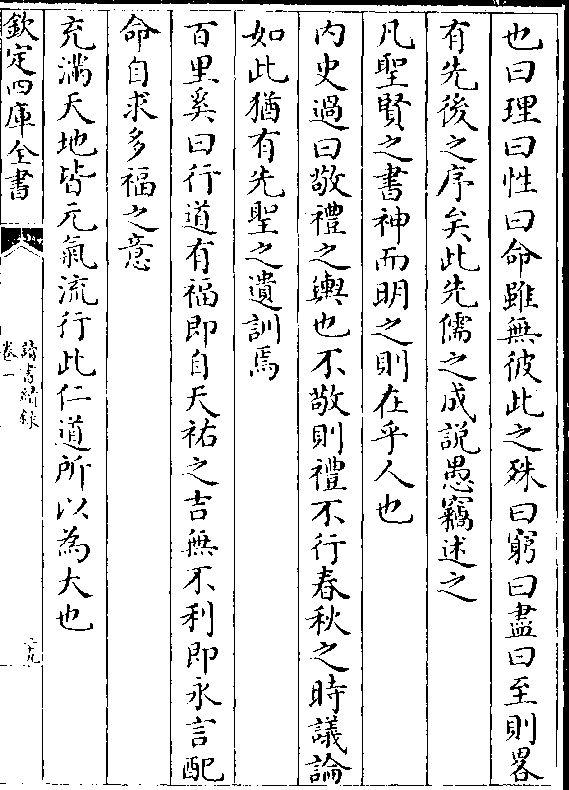 也曰理曰性曰命雖無彼此之殊曰窮曰盡曰至則畧
有先後之序矣此先儒之成説愚竊述之
凡聖賢之書神而明之則在乎人也
内史過曰敬禮之輿也不敬則禮不行春秋之時議論
如此猶有先聖之遺訓焉
百里奚曰行道有福即自天祐之吉無不利即永言配
命自求多福之意
充滿天地皆元氣流行此仁道所以為大也
欽定四庫全書
讀書續録
卷一
二十九